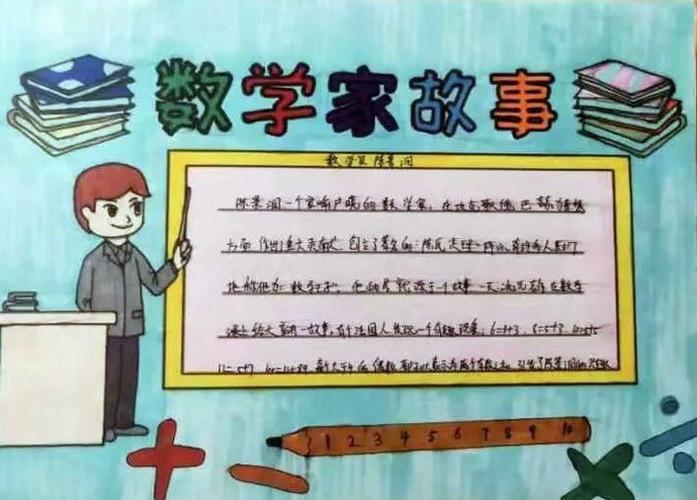 数学家故事
数学家陈景润
陈景润一个家喻户晓的数学家,在攻克歌德巴赫猜想
方面作出了重大贡献,创立了著名的"陈氏定理",所以有许多人亲切
地称他为"数学王子"。
课上给大家讲一故事,有个法国人发现一个有趣现象:6=3+3,8=5+3,10=5+5
12=5+7,每个大于4的偶数都可以表示为两个奇数之和。
1 2 3 4 5 6 7 8 9 10